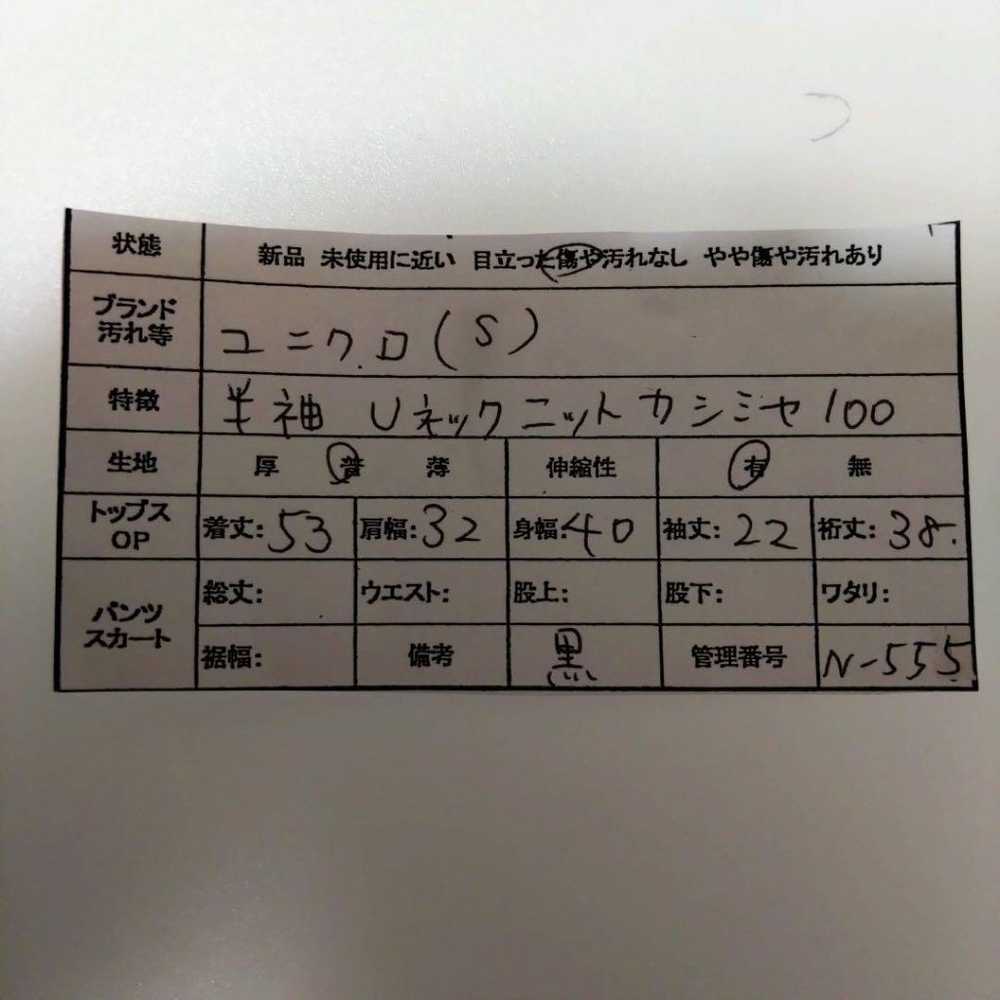 状態 新品 未使用に近い 目立った傷や汚れなし やや傷や汚れあり
ブランド
汚れ等 ユニクロ(S)
特徴 半袖 Uネックニットカシミヤ100
生地 厚 普 薄 伸縮性 有 無
トップス
OP 着丈:53 肩幅:32 身幅:40 袖丈:22 裄丈:38.
パンツ
スカート 総丈: ウエスト: 股上: 股下: ワタリ:
裾幅: 備考 黒 管理番号 N-555